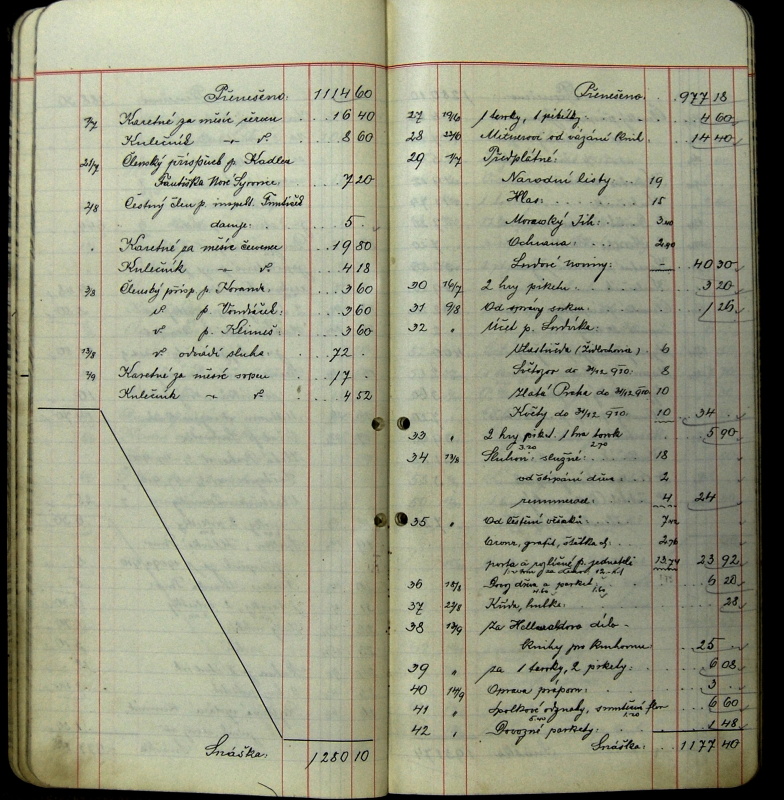 Přenešeno: 1114 60
7/7 Karetné za měsíc červen . . 16 40
Kulečník — " — . . 8 60
21/7 Členský příspěvek p. Kadlec
Nové Syrovice . . 7 20
2/8 Čestný člen p. inspekt.
daruje . . 5 .
" Karetné za měsíc červenec . . 19 80
Kulečník — " — . . 4 18
3/8 Členský přísp. p. Koranda . . 3 60
" p. Vondráček: . . 3 60
" p. Klimeš . . 3 60
13/8 " odvádí sluha . . 72 .
7/9 Karetné za měsíc srpen . . 17 .
Kulečník — " — . . 4 52
Snáška: 1280 10
Přenešeno 977 18
27 19/6 1 taroky, 1 pikety . . 4 60
28 27/6 od vázání knih . . 14 40
29 7/7 Předplatné:
Národní listy: 19
Hlas: 15
Moravský Jih: 3.40
Ochrana: 2.90
noviny: — 40 30
30 16/7 2 hry piket . . 3 20
31 9/8 Od správy . . 1 26
32 " Účet p.
(Židlochovice) 6
Světozor do 31/12 910. 8
Zlatá Praha do 31/12 910 10
Květy do 31/12 910. 10 34 .
33 " 2 hry piket. 1 hra tarok 5 90
3.20 2.70
34 13/8 služné: 18
od štípání dříva 2
remunerad. 4 24 .
35 " Od čištění 7
grafit, 2
porta a různé p. jednatel 13.74 23 92
36 18/8 dříva a parket 6 20
37 22/8 Křída, hubka: 28
38 13/9 za dílo —
knihy pro knihovnu 25 .
39 " za 1 taroky, 2 pikety: 6 08
40 14/9 Oprava 3 .
41 " Spolkové odznaky, smuteční flor 6 60
42 " Dovozné parkety: 1 48
Snáška: 1177 40